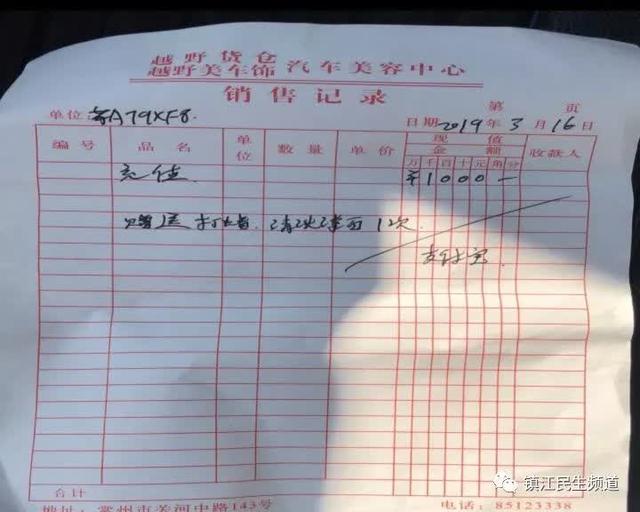 越野货仓
越野美车饰 汽车美容中心
销售记录
第 页
单位: A79XF8.
日期 2019 年 3 月 16 日
编号 品名 单位 数量 单价 现值 金额 万 千 百 十 元 角 分 收款人
充值 ¥ 1 0 0 0 —
赠送 打蜡 清洗 1次
支付宝
合计
地址: 常州市关河中路143号 电话: 85123338
镇江民生频道